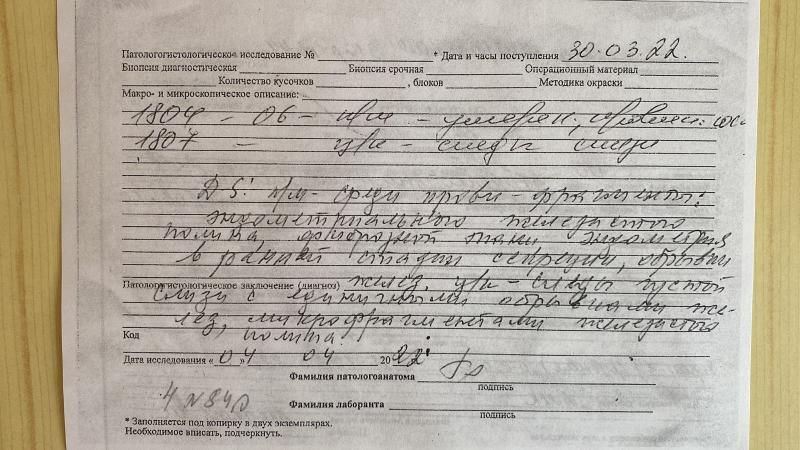 Патологогистологическое исследование № * Дата и часы поступления 30.03.22.
Биопсия диагностическая Биопсия срочная Операционный материал
Количество кусочков , блоков Методика окраски
Макро- и микроскопическое описание:
1804 - 06 - п/м - умерен.,
1807 - ц/к - следы слизи
DS: п/м - среди крови - фрагменты:
эндометриального железистого
полипа, фиброзной ткани эндометрия
в ранней стадии секреции, обрывки
Патологогистологическое заключение (диагноз) желез. ц/к - следы густой
слизи с единичными обрывками же-
лез, микрофрагментами железистого
Код полипа.
Дата исследования « 04 » 04 2022
Фамилия патологоанатома
подпись
Фамилия лаборанта
подпись
* Заполняется под копирку в двух экземплярах.
Необходимое вписать, подчеркнуть.